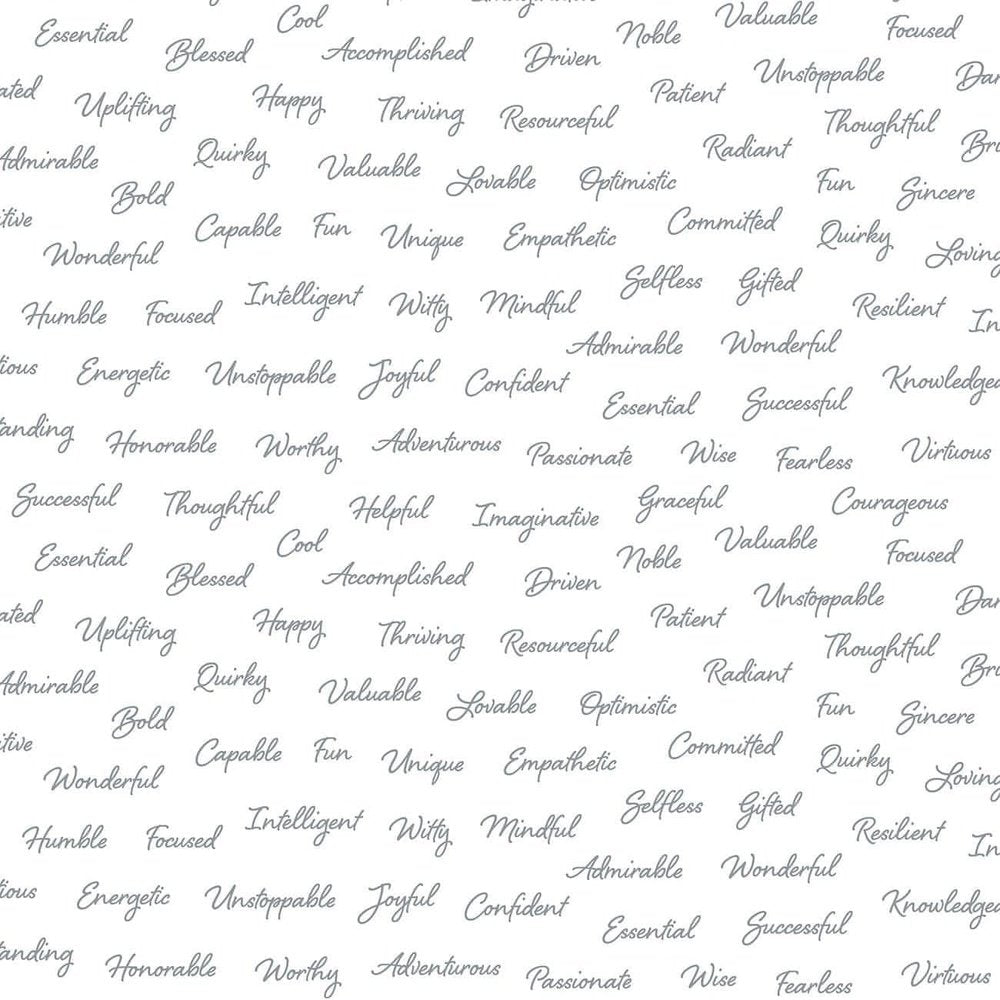 Cool Valuable
Essential Noble Focused
Blessed Accomplished Driven
Unstoppable
Uplifting Happy Thriving Resourceful Patient
Thoughtful
Admirable Quirky Valuable Lovable Optimistic Radiant
Bold Fun Sincere
Wonderful Capable Fun Unique Empathetic Committed Quirky
Loving
Humble Focused Intelligent Witty Mindful Selfless Gifted Resilient
Admirable Wonderful
Energetic Unstoppable Joyful Confident
Essential Successful
Honorable Worthy Adventurous Passionate Wise Fearless Virtuous
Successful Thoughtful Helpful Imaginative Graceful Courageous
Cool Valuable
Essential Noble Focused
Blessed Accomplished Driven
Unstoppable
Uplifting Happy Thriving Resourceful Patient
Thoughtful
Admirable Quirky Valuable Lovable Optimistic Radiant
Bold Fun Sincere
Wonderful Capable Fun Unique Empathetic Committed Quirky
Loving
Humble Focused Intelligent Witty Mindful Selfless Gifted Resilient
Admirable Wonderful
Energetic Unstoppable Joyful Confident
Essential Successful
Honorable Worthy Adventurous Passionate Wise Fearless Virtuous